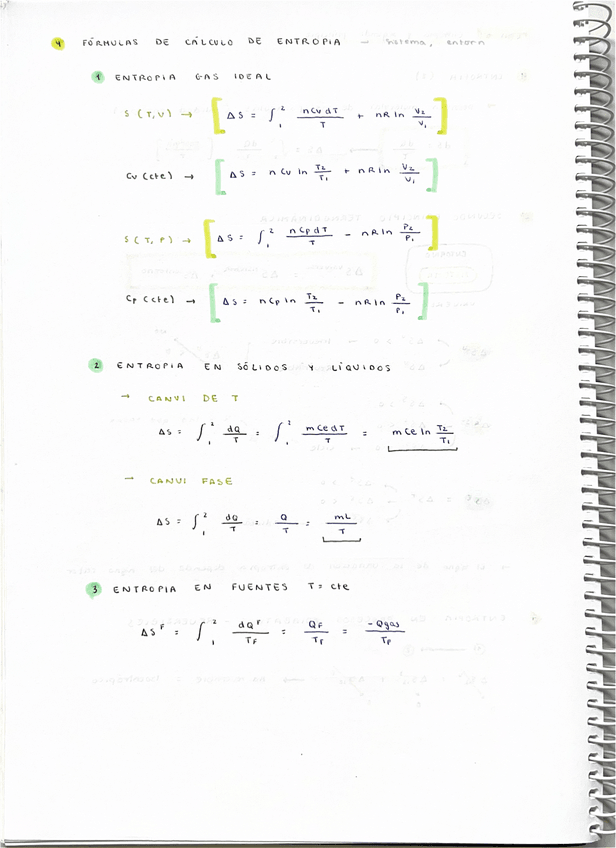 4 FÓRMULAS DE CÁLCULO DE ENTROPIA → sistema, entorn
1 ENTROPIA GAS IDEAL
S (T,V) → [ ΔS = ∫₁² nCvdT/T + nRln V₂/V₁ ]
Cv (cte) → [ ΔS = nCv ln T₂/T₁ + nRln V₂/V₁ ]
S (T, P) → [ ΔS = ∫₁² nCpdT/T - nRln P₂/P₁ ]
Cp (cte) → [ ΔS = nCp ln T₂/T₁ - nRln P₂/P₁ ]
2 ENTROPIA EN SÓLIDOS Y LÍQUIDOS
→ CANVI DE T
ΔS = ∫₁² dQ/T = ∫₁² mCedT/T = mCe ln T₂/T₁
→ CANVI FASE
ΔS = ∫₁² dQ/T = Q/T = mL/T
3 ENTROPIA EN FUENTES T = cte
ΔSᶠ = ∫₁² dQᶠ/T_F = Q_F/T_F = -Qgas/T_F